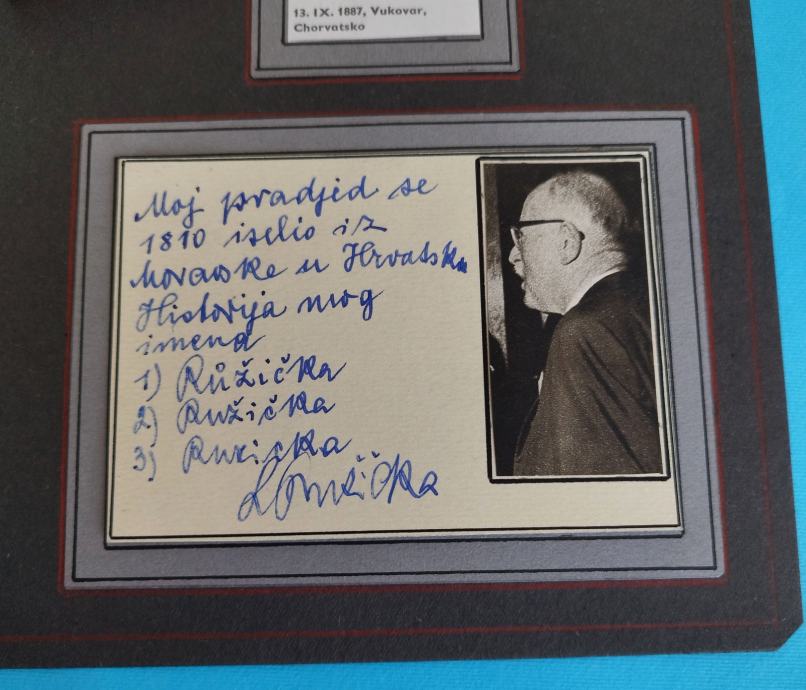 13. IX. 1887, Vukovar,
Chorvatsko
Moj pradjed se
1810 iselio iz
Moravske u Hrvatsku
Historija mog
imena
1) Růžička
2) Ružička
3) Ruzicka
L Ružička